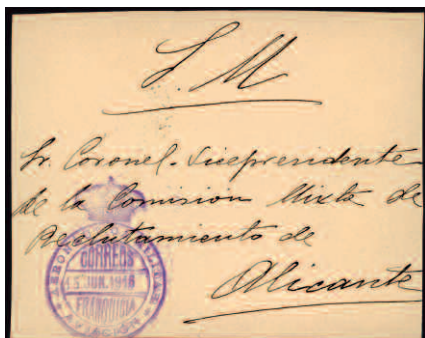 S. M
Sr. Coronel-Vicepresidente
de la Comisión Mixta de
Reclutamiento de
Alicante
CORREOS
JUN. 1916
FRANQUICIA